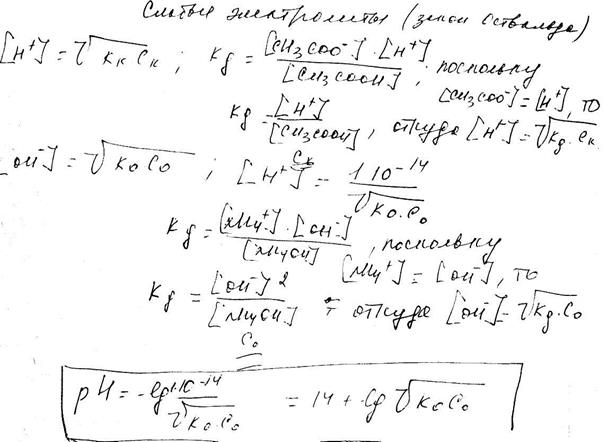 Слабые электролиты (закон Оствальда)
[H⁺] = √KкCк ; Kд = [CH₃COO⁻]·[H⁺] / [CH₃COOH] ; поскольку
[CH₃COO⁻] = [H⁺], то
Kд = [H⁺] / [CH₃COOH] , откуда [H⁺] = √Kд·Cк
Cк
[OH⁻] = √KоCо ; [H⁺] = 1 10⁻¹⁴ / √Kо·Cо
Kд = [NH₄⁺]·[OH⁻] / [NH₄OH] , поскольку
[NH₄⁺] = [OH⁻], то
Kд = [OH⁻]² / [NH₄OH] откуда [OH⁻] = √Kд·Cо
Cо
pH = -lg 1·10⁻¹⁴ / √Kо·Cо = 14 + lg √KоCо